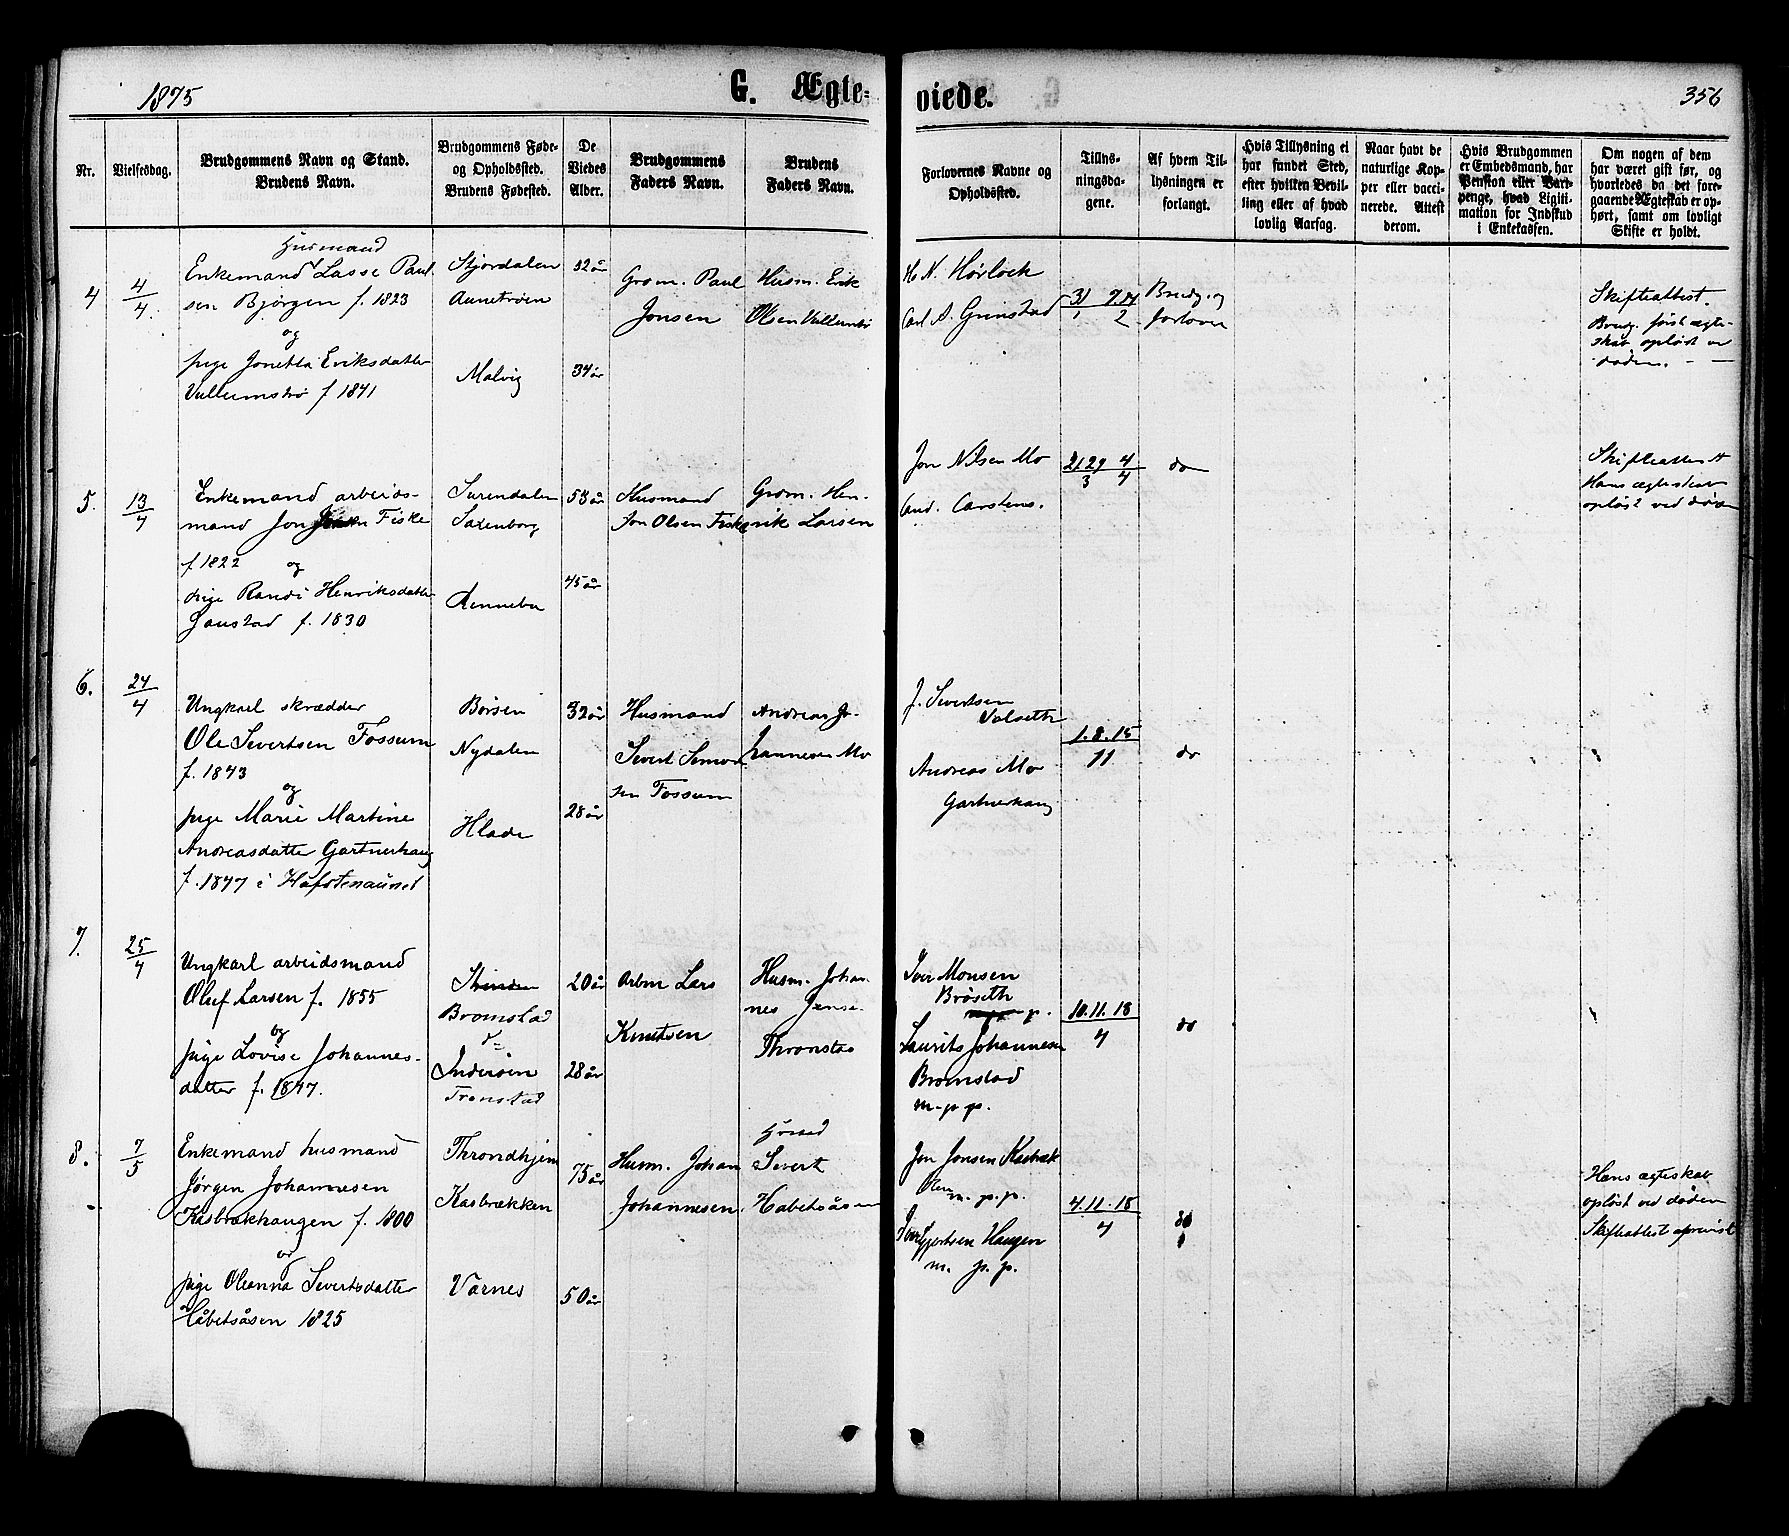 1875
G. Ægte-
viede.
356
Nr.
Vielsesdag.
Brudgommens Navn og Stand.
Brudens Navn.
Brudgommens Føde-
og Opholdssted.
Brudens Fødested.
De
Viedes
Alder.
Brudgommens
Faders Navn.
Brudens
Faders Navn.
Forlovernes Navne og
Opholdssted.
Tillys-
ningsda-
gene.
Af hvem Til-
lysningen er
forlangt.
Hvis Tillysning ei
har fundet Sted,
efter hvilken Bevil-
ling eller af hvad
lovlig Aarsag.
Naar havt de
naturlige Kop-
per eller vacci-
nerede. Attest
derom.
Hvis Brudgommen
er Embedsmand, har
Pension eller Vart-
penge, hvad Ligiti-
mation for Indskud
i Enkekassen.
Om nogen af dem
har været gift før, og
hvorledes da det fore-
gaaende Ægteskab er op-
hørt, samt om lovligt
Skifte er holdt.
4
4/4.
Husmand
Enkemand Lasse Paul
sen Bjørgen f. 1823
og
pige Jonetta Eriksdatter
Vullumstrø f 1841
Stjordalen
Aunetrøen
Malvig
52 år
34 år
Grdm. Paul
Jonsen
Husm. Erik
Olsen Vullumstrø
H. N. Hørlock
Carl A. Grinstad
31/1 7.14/2
Brudg. og
forlover
Skifteattest.
Brudg. første ægte-
skab opløst ve
døden.
5.
13/4
Enkemand arbeids-
mand Jon Fiske
f 1822
og
pige Randi Henriksdatter
Gaustad f. 1830
Surendalen
Saxenborg
Rennebu
53 år
45 år
Husmand
Jon Olsen Fiske
Grdm. Hen-
rik Larsen
Jon Nilsen Mo
And. Carstens.
21 29/3 4/4
do
Skifteattest
Hans ægteskab
opløst ved døde
6.
24/4
Ungkarl skrædder
Ole Sivertsen Fossum
f. 1843
og
pige Marie Martine
Andreasdatter Gartnerhaug
f. 1847 i Hafstenaunet
Børsen
Nydalen
Hlade
32 år
28 år
Husmand
Sivert Simon
sen Fossum
Andreas Jo-
hannesen Mo
J. Sivertsen
Valseth
Andreas Mo
Gartnerhaug
1. 8. 15/11
do
7.
25/4
Ungkarl arbeidsmand
Oluf Larsen f. 1855
og
pige Lovise Johannes-
datter f. 1847.
Strinden
Bromstad
Inderøen
Tronstad
20 år
28 år
Arbm Lars
Knutsen
Husm. Johan-
nes Jense
Thronstad
Iver Monsen
Brøseth
p.
Laurits Johannesen
Bromstad
m. p. p.
10. 11. 18/4
do
8.
7/5
Enkemand husmand
Jørgen Johannesen
Kasbrækhaugen f. 1800
og
pige Oleanna Sivertsdatter
Håbetsåsen 1825
Throndhjem
Kasbrækken
Værnes
75 år
50 år
Husm. Johan
Johannesen.
Husmd
Sivert
Habetsåsen
Jon Jonsen Kasbræk
m. p. p.
Haugen
m. p. p.
4. 11. 18/4
do
Hans ægteskab
opløst ved døden
Skifteattest